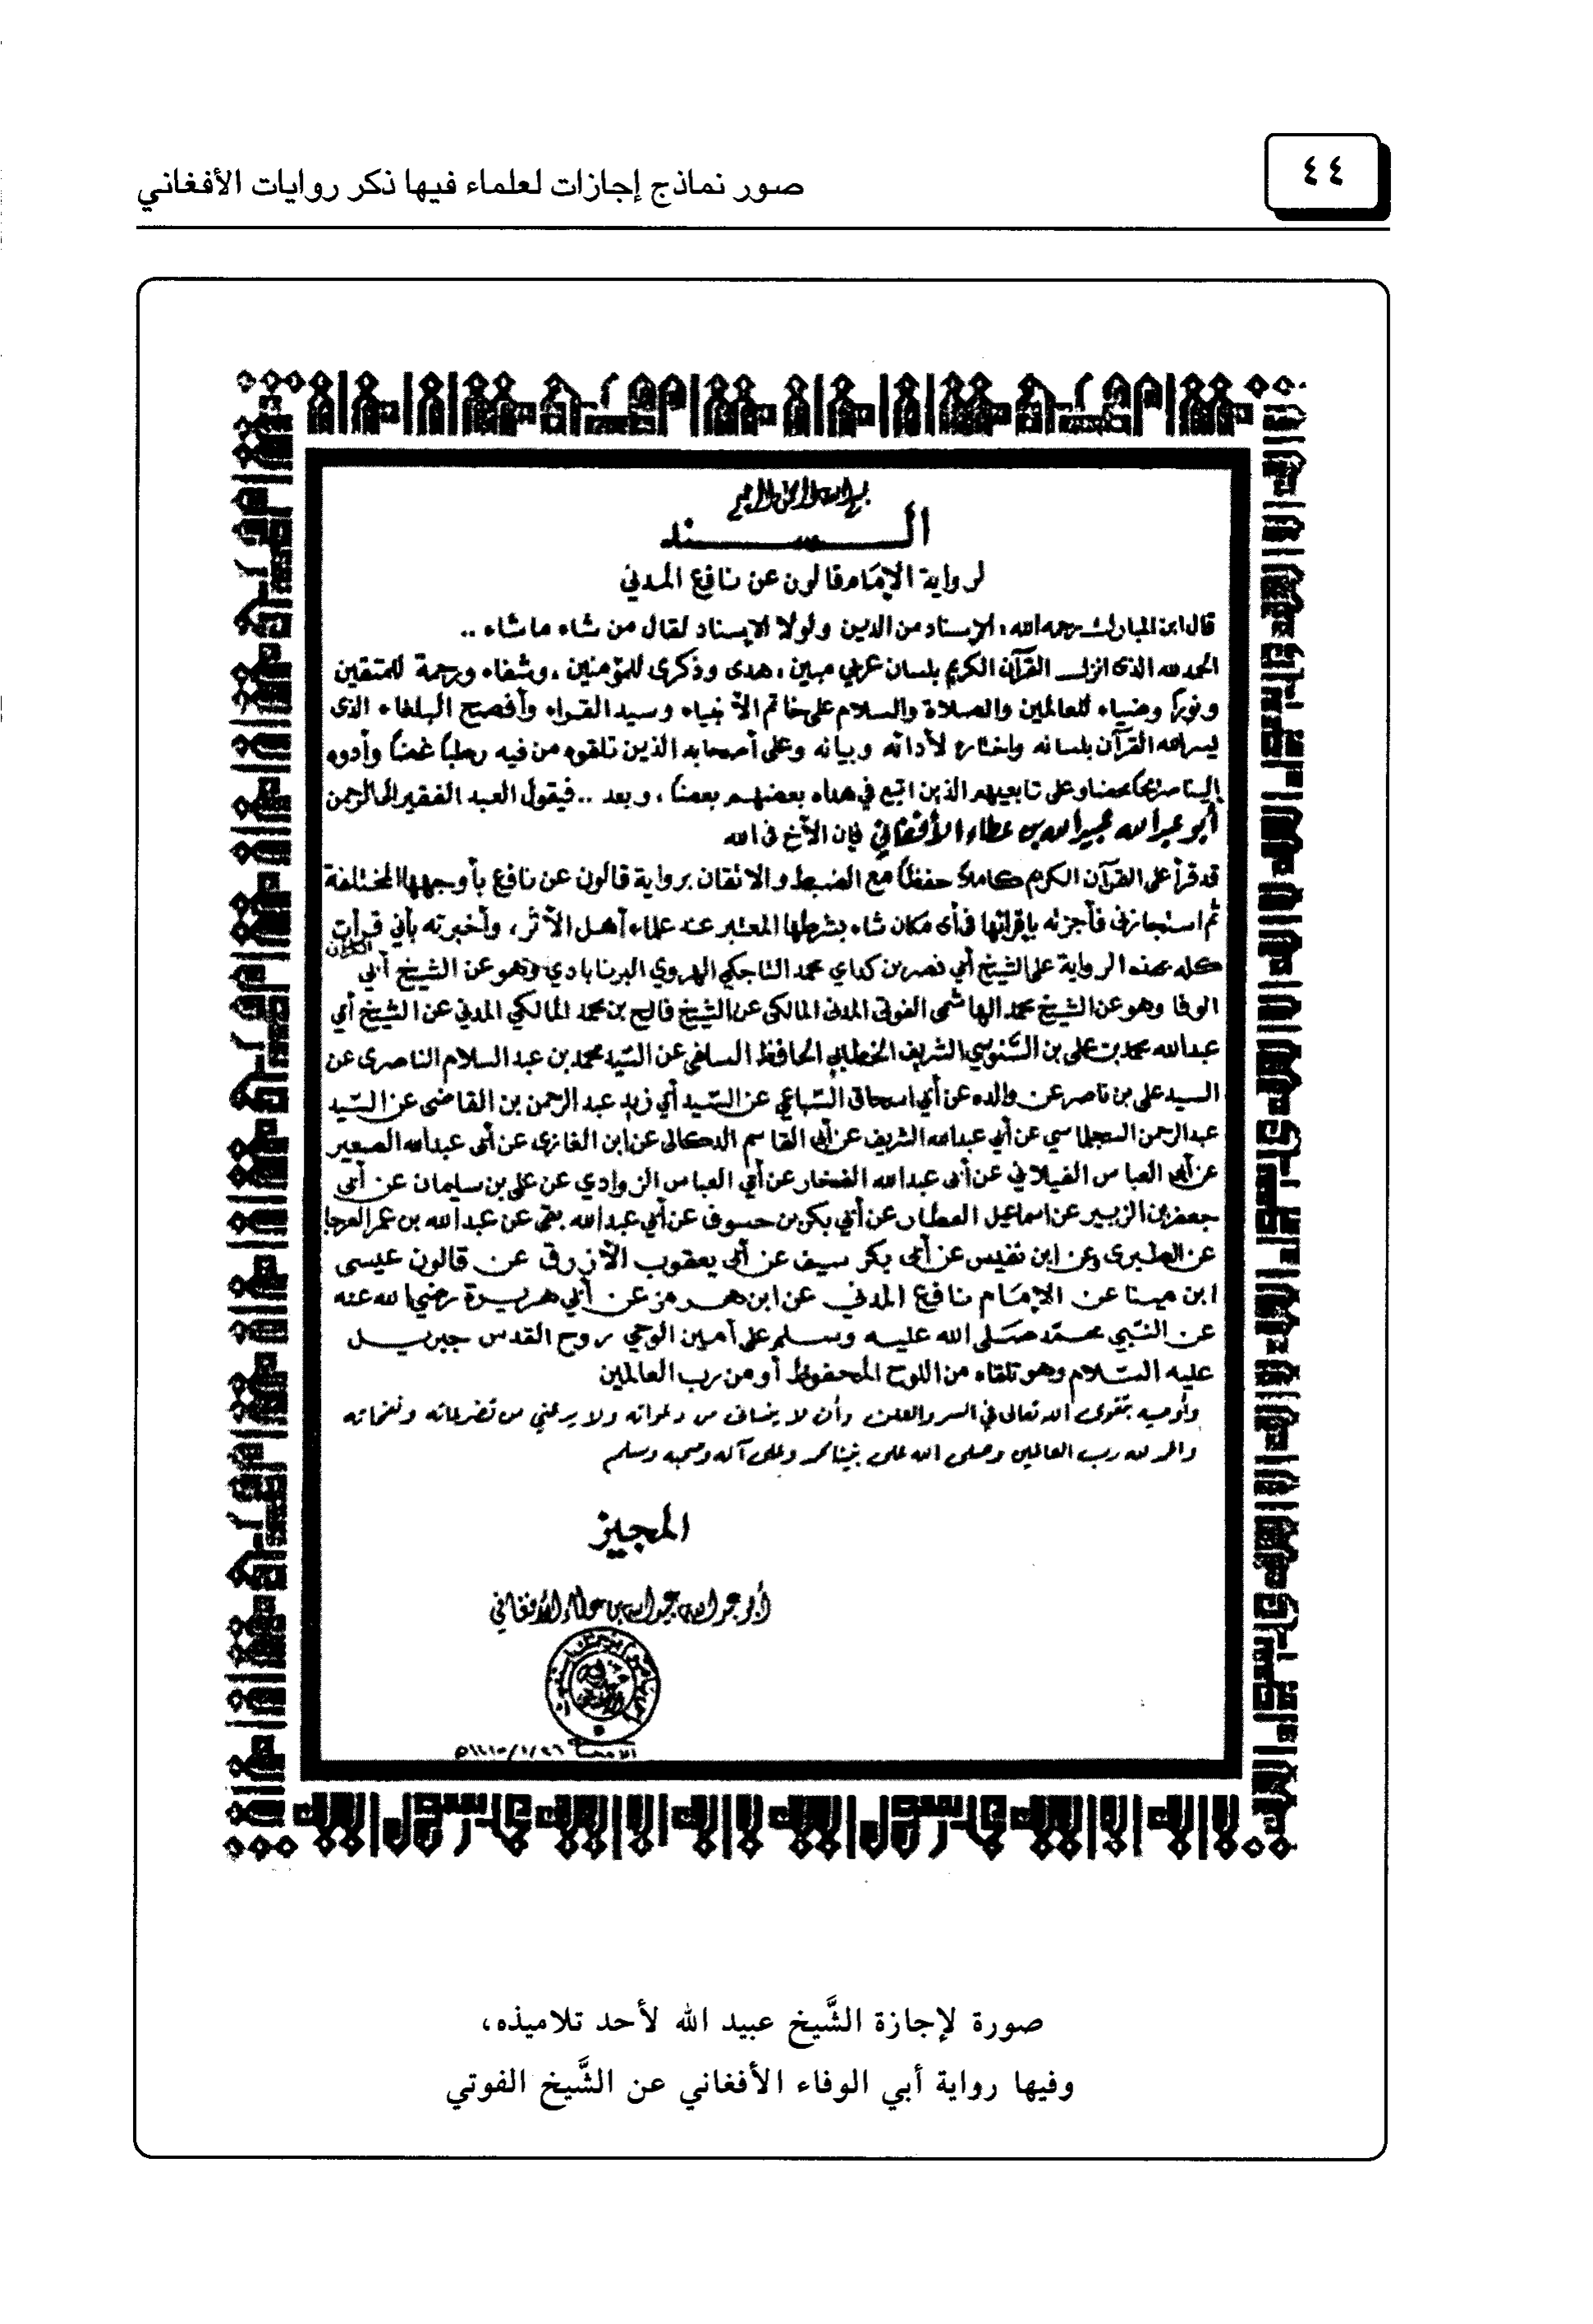 ٤٤
صور نماذج إجازات لعلماء فيها ذكر روايات الأفغاني
بسم الله الرحمن الرحيم
السند
لرواية الإمام قالون عن نافع المدني
قال ابن المبارك رحمه الله، الإسناد من الدين ولولا الإسناد لقال من شاء ما شاء ..
الحمد لله الذى انزل القرآن الكريم بلسان عربي مبين، هدى وذكرى للمؤمنين، وشفاء ورحمة للمتقين
ونورًا وضياء للعالمين والصلاة والسلام على خاتم الأنبياء وسيد القراء وأفصح البلغاء الذى
يسر الله القرآن بلسانه واختاره لأدائه وبيانه وعلى أصحابه الذين تلقوه من فيه رطبًا غضًا وأدوه
إلينا صريحًا محضا وعلى تابعيهم الذين اتبع في هداه بعضهم بعضًا، وبعد .. فيقول العبد الفقير إلى الرحمن
أبو عبد الله عبيد الله بن عطاء الأفغاني فإن الأخ فى الله
قد قرأ على القرآن الكريم كاملاً حفظًا مع الضبط والاتقان برواية قالون عن نافع بأوجهها المختلفة
ثم استجازني فأجزته بإقرائها فى أى مكان شاء بشرطها المعتبر عند علماء أهل الأثر، وأخبرته بأني قرأت القرآن
كله بهذه الرواية على الشيخ أبي نصر بن كداي محمد التاجكي الهروي البرنابادي وهو عن الشيخ أبي
الوفا وهو عن الشيخ محمد الهاشمى الفوتى المدنى المالكى عن الشيخ فالح بن محمد المالكي المدني عن الشيخ أبي
عبدالله محمد بن على بن السنوسي الشريف الخطابي الحافظ السلفى عن السيد محمد بن عبد السلام الناصرى عن
السيد على بن ناصر عن والده عن أبي اسحاق السباعي عن السيد أبي زيد عبد الرحمن بن القاضى عن السيد
عبد الرحمن السجلماسي عن أبي عبدالله الشريف عن أبى القاسم الدكالى عن ابن الغازى عن أبى عبدالله الصغير
عن أبى العباس الفيلالي عن أبى عبدالله الفخار عن أبي العباس الزواوي عن على بن سليمان عن أبى
جعفر بن الزبير عن اسماعيل العطار عن أبي بكر بن حسوف عن أبي عبدالله بقى عن عبدالله بن عمر العرجا
عن الطبرى وعن ابن نفيس عن أبى بكر سيف عن أبى يعقوب الأزرق عن قالون عيسى
ابن مينا عن الإمام نافع المدني عن ابن هرمز عن أبي هريرة رضي الله عنه
عن النبي محمد صلى الله عليه وسلم على أمين الوحي روح القدس جبريل
عليه السلام وهو تلقاه من اللوح المحفوظ أو من رب العالمين
وأوصيه بتقوى الله تعالى في السر والعلن وأن لا ينسانى من دعواته ولا يدعني من تضرعاته ونفحاته
والحمد لله رب العالمين وصلى الله على نبينا محمد وعلى آله وصحبه وسلم
المجيز
أبو عبد الله عبيد الله بن عطاء الأفغاني
صورة لإجازة الشَّيخ عبيد الله لأحد تلاميذه،
وفيها رواية أبي الوفاء الأفغاني عن الشَّيخ الفوتي